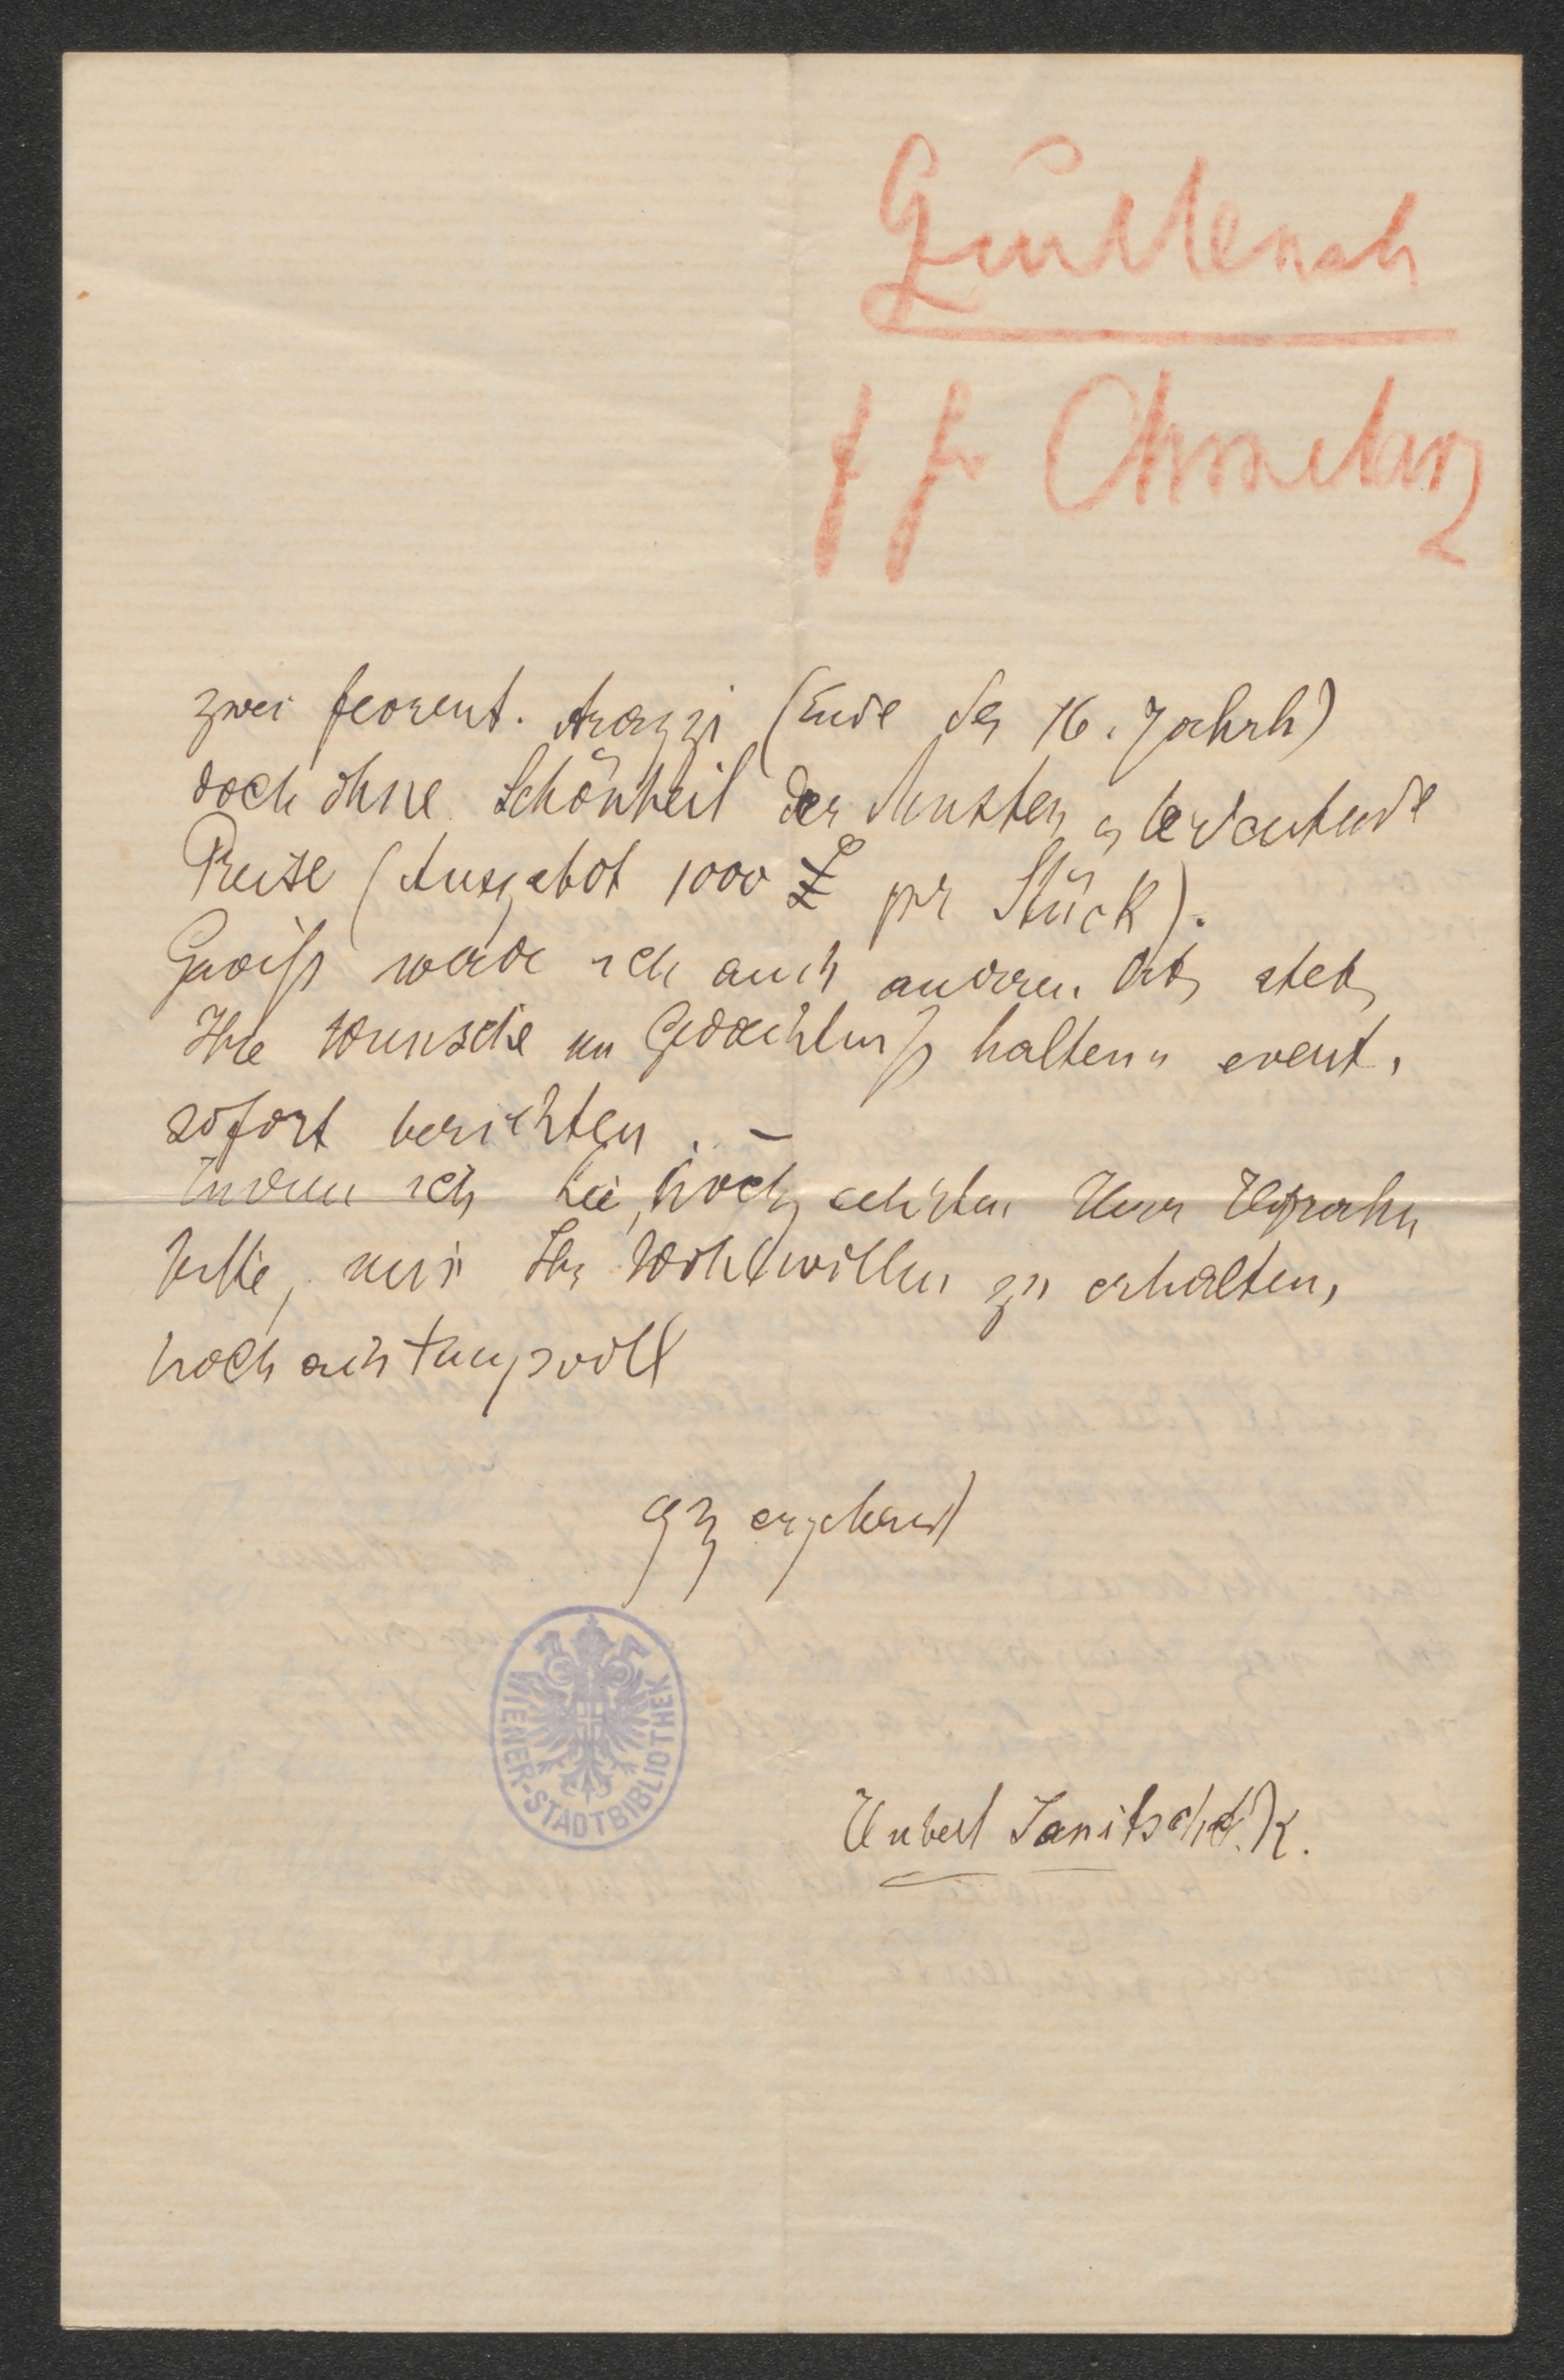 zwei florent. Arazzi (Ende des 16. Jahrh)
doch ohne Schönheit der Muster u bedeutende
Preise (Ausgebot 1000 £ per Stück).
Gewiß werde ich auch anderen Orts stets
Ihre Wünsche im Gedächtniß halten u event.
sofort berichten. –
Indem ich Sie, hoch geehrter Herr
bitte, mir Ihr Wohlwollen zu erhalten,
hochachtungsvoll
gz ergebenst
WIENER-STADTBIBLIOTHEK
Hubert Janitschek.